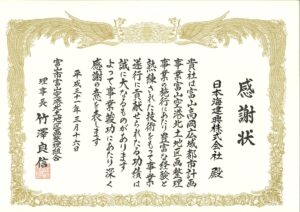 感謝状
日本海建興株式会社 殿
貴社は富山高岡広域都市計画
事業富山空港北土地区画整理
事業の施行にあたり豊富な経験と
熟練された技術をもって事業
遂行に貢献せられたる功績は
誠に大なるものがあります
よって事業竣功にあたり深く
感謝の意を表します
平成三十一年三月十六日
富山市富山空港北土地区画整理組合
理事長 竹澤良信